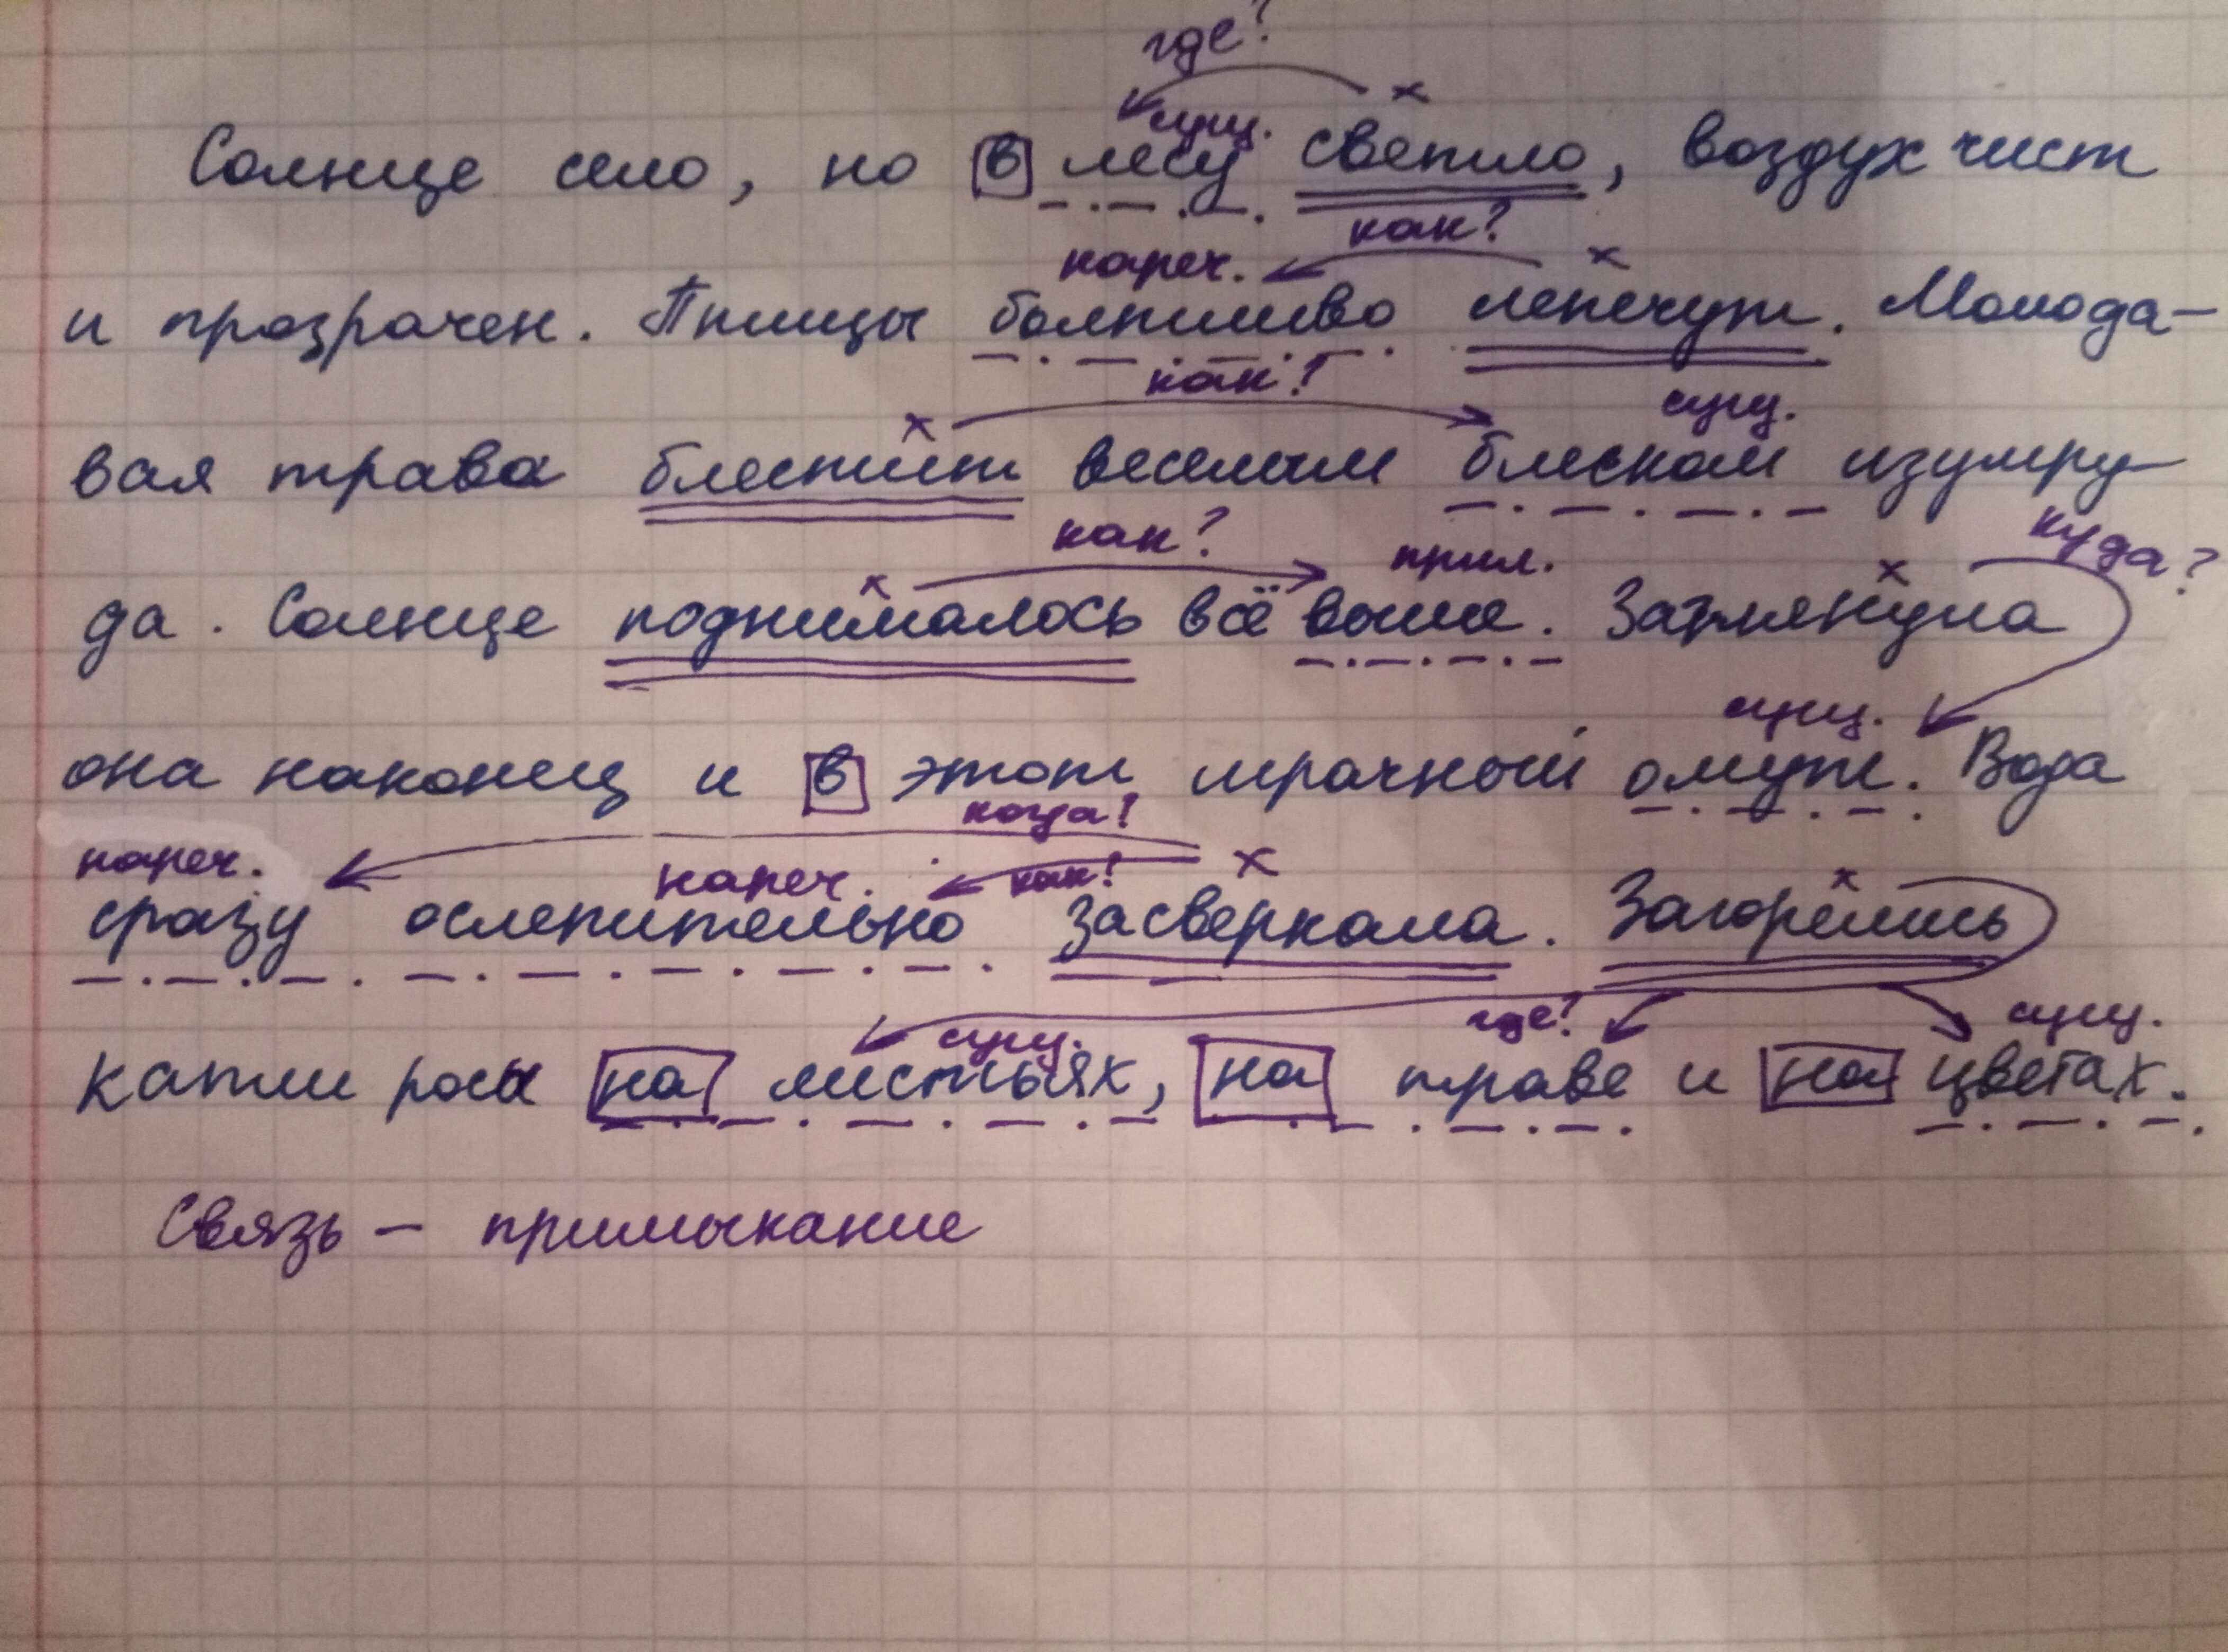 где?
сущ.
Солнце село, но в лесу светло, воздух чист
нареч. как?
и прозрачен. Птицы болтливо лепечут. Молода-
как? сущ.
вая трава блестит веселым блеском изумру-
как? прил. куда?
да. Солнце поднималось всё выше. Заглянула
сущ.
она наконец и в этот мрачный омут. Вода
когда?
нареч. нареч. как?
сразу ослепительно засверкала. Загорелись
сущ. где? сущ.
капли росы на листьях, на траве и на цветах.
Связь - примыкание